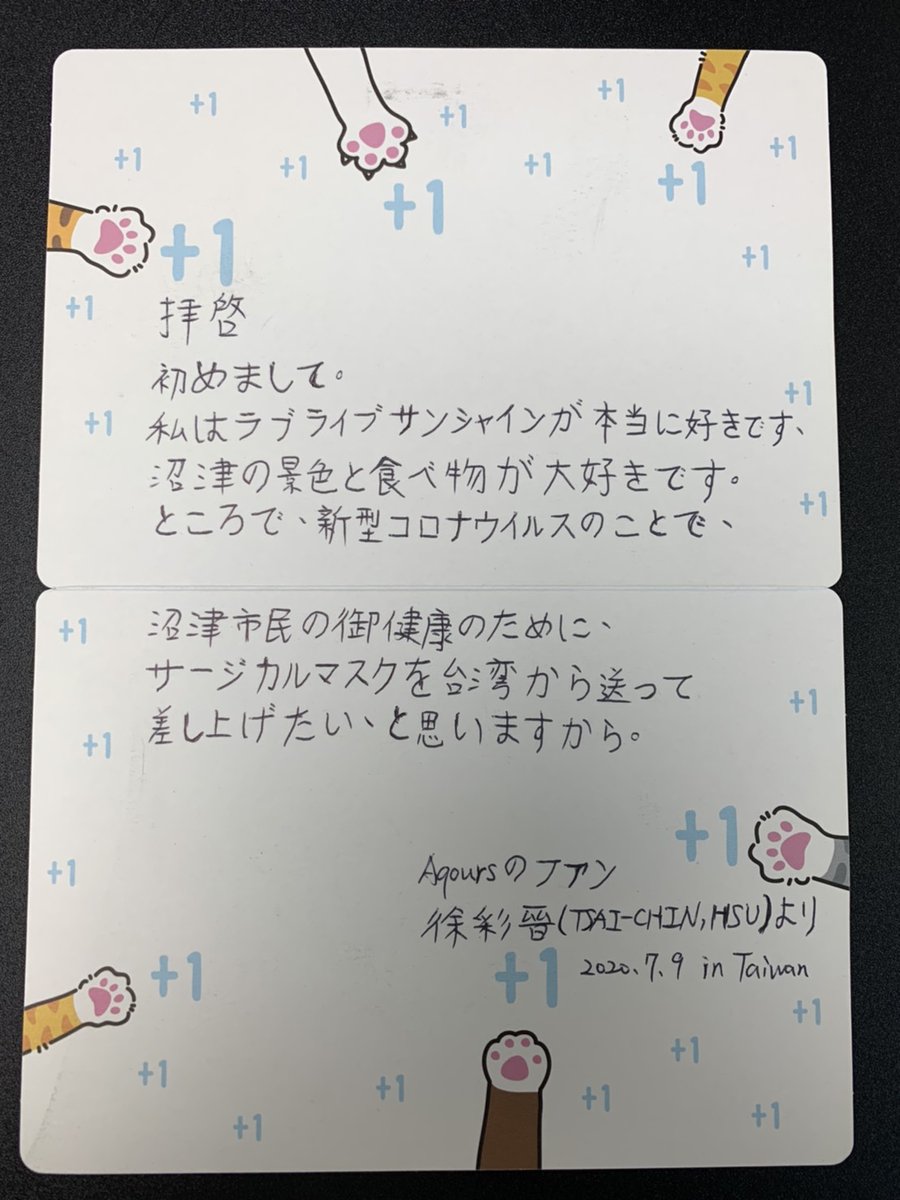 +1
+1
+1
+1
+1
+1
+1
+1
+1
+1
+1
+1
拝啓
初めまして。
+1
+1
私はラブライブサンシャインが本当に好きです、
沼津の景色と食べ物が大好きです。
+1
ところで、新型コロナウイルスのことで、
沼津市民の御健康のために、
+1
サージカルマスクを台湾から送って
+1
差し上げたい、と思いますから。
+1
+1
+1
Aqoursのファン
徐彩晋(TSAI-CHIN,HSU)より
2020.7.9 in Taiwan
+1
+1
+1
+1
+1
+1
+1
+1
+1